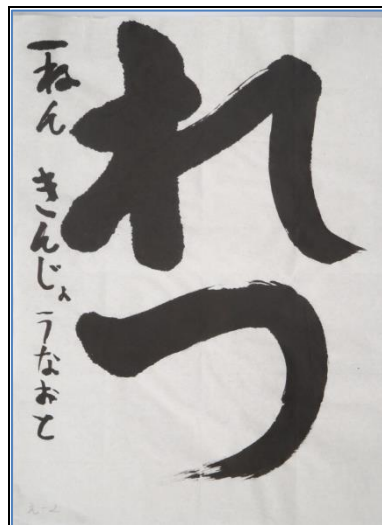 れつ
一ねん きんじょうなおと